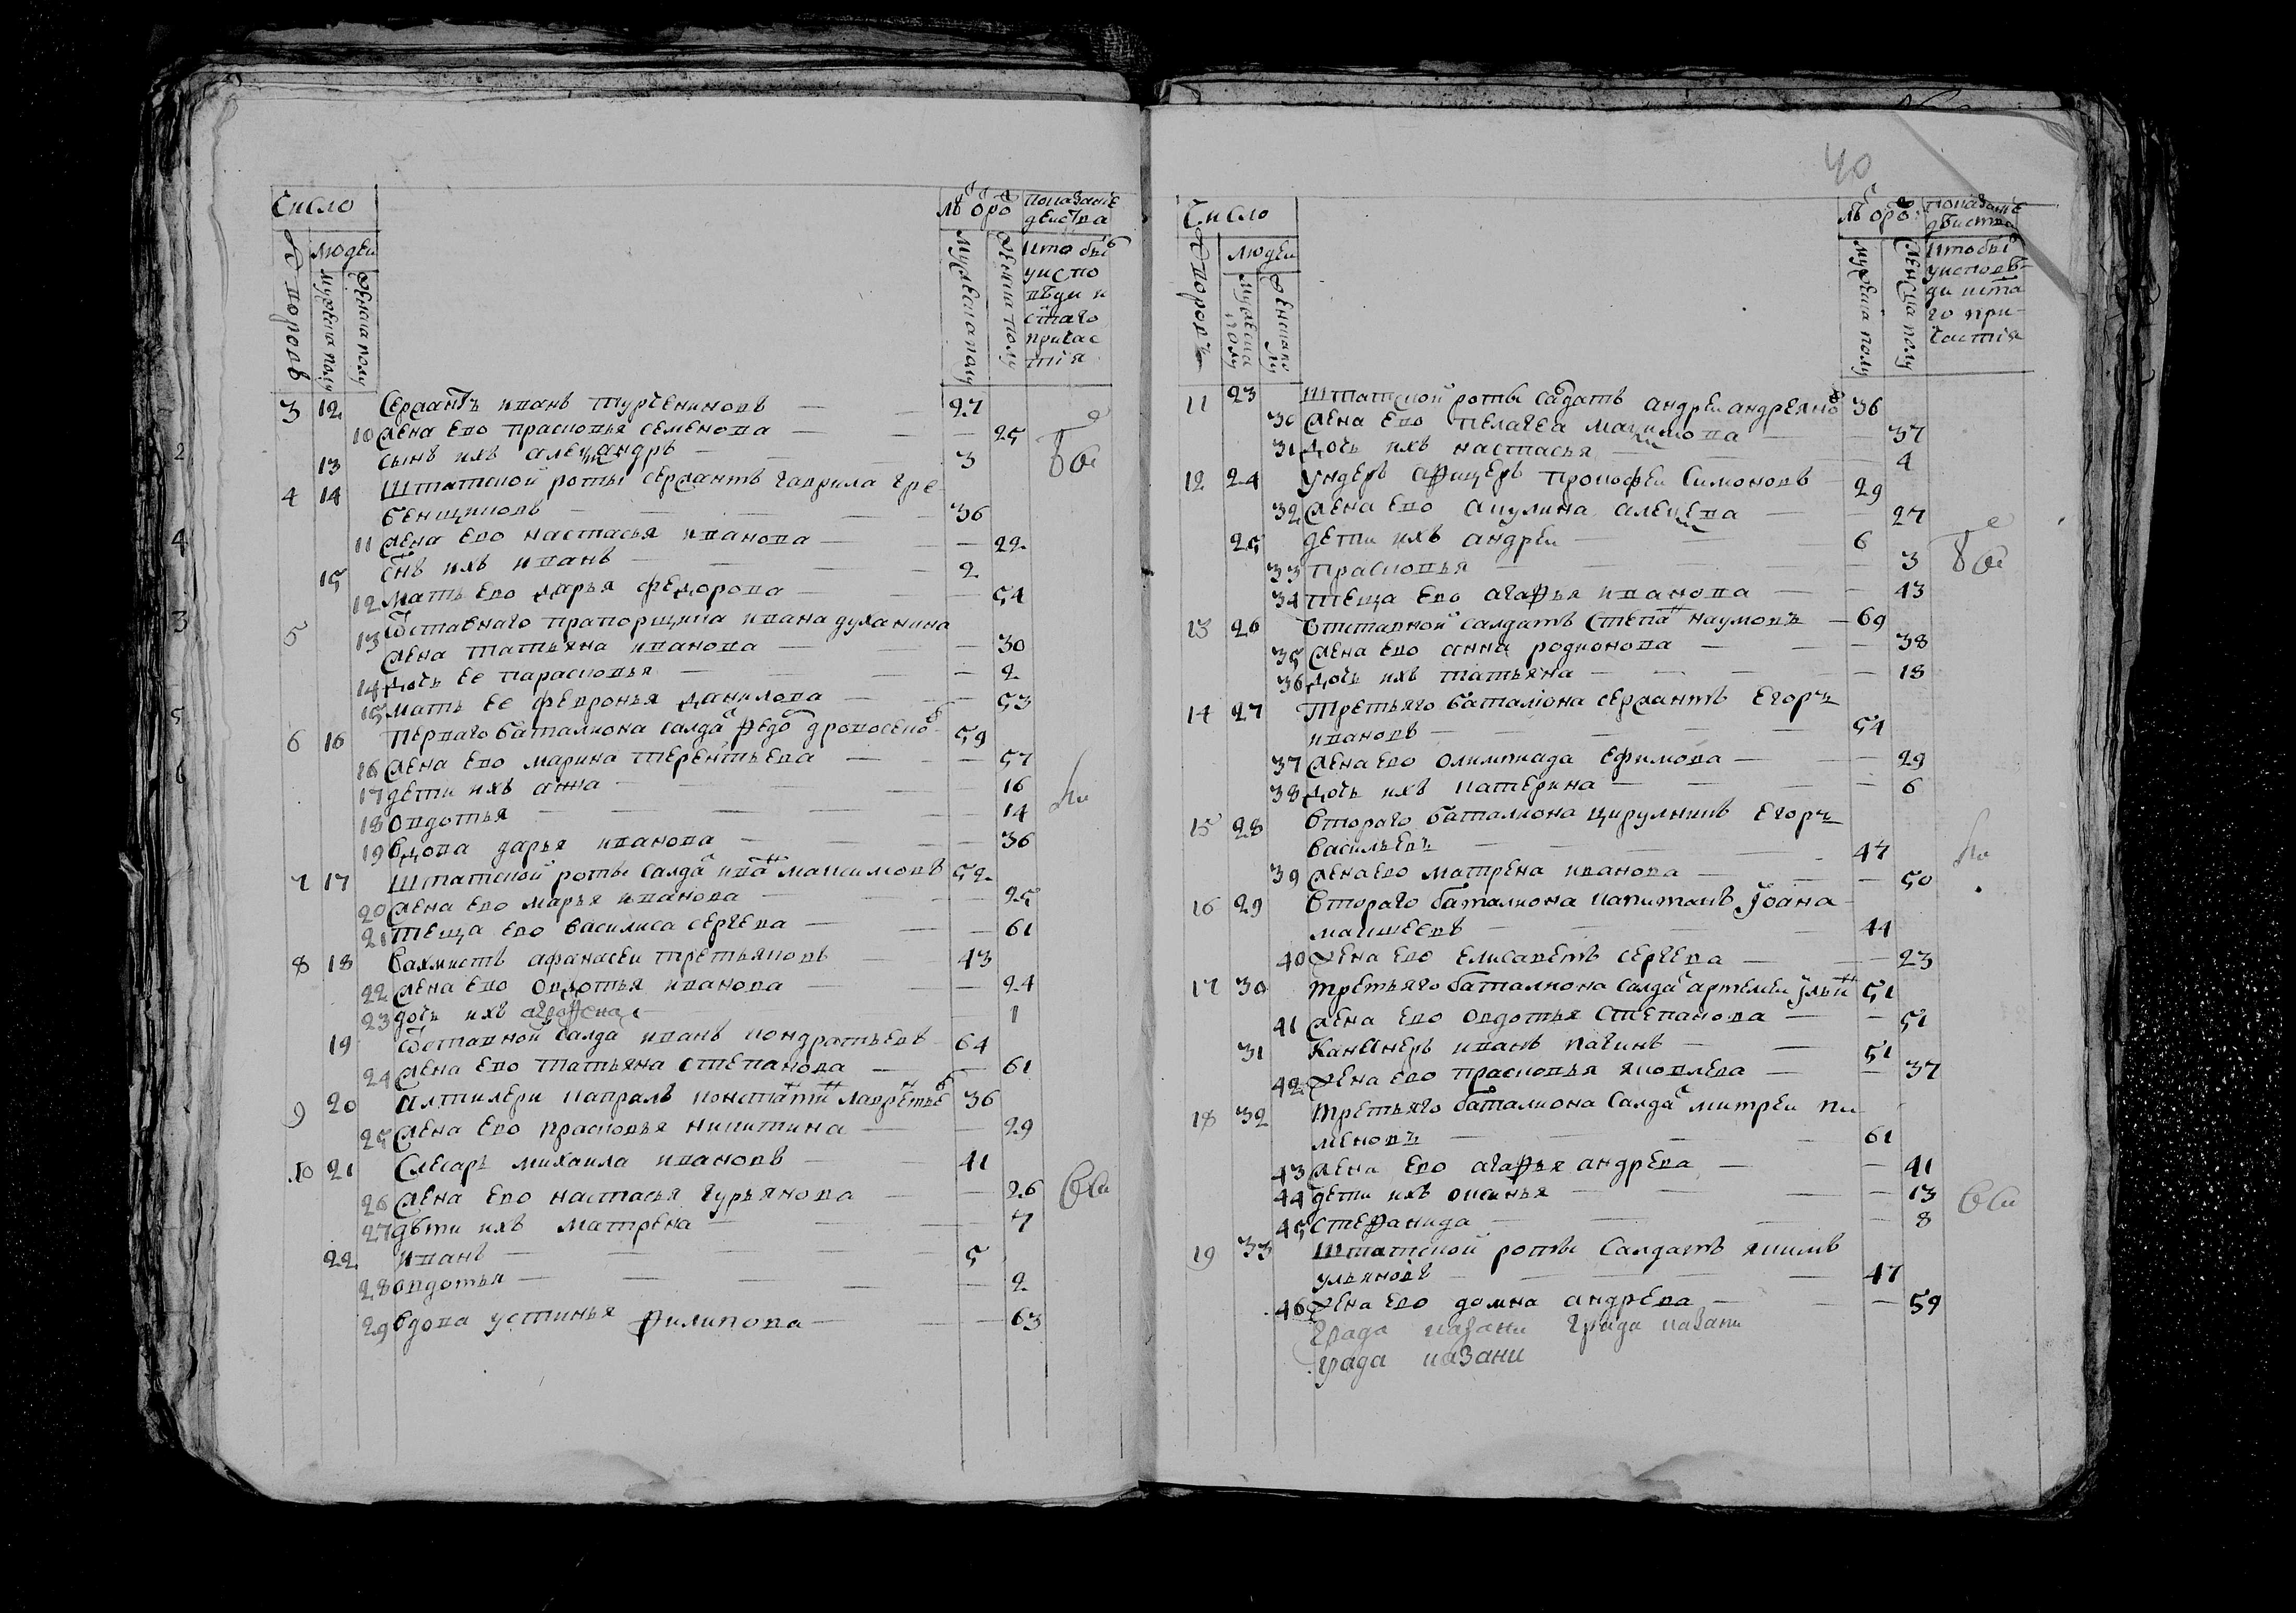 Число
людеи
дворовъ
мужеска полу
женска полу
лѣ ѡ ро
мужеска полу
женска полу
показание
деиства
кто был
у испо
вѣди и
стаго
причас
тия
3 12 Сержантъ иванъ турчениновъ 27
10 жена ево прасковья семенова 25
13 сынъ ихъ александръ 3
4 14 Штатской роты сержантъ гаврила гре
бенщиковъ 36
11 жена ево настасья иванова 22
15 снъ ихъ иванъ 2
12 мать ево дарья федорова 54
5 Ѿставнаго прапорщика ивана духанина
13 жена татьяна иванова 30
14 дочь ее парасковья 2
15 мать ее февронья данилова 53
6 16 Перваго баталиона салда федо дровосеко 59
16 жена ево марина терентьева 57
17 дети ихъ анна 16
18 овдотья 14
19 вдова дарья иванова 36
7 17 Штатской роты салда ива максимовъ 52
20 жена ево марья иванова 25
21 теща ево василиса сергева 61
8 18 Вахмистъ афанасеи третьяковъ 43
22 жена ево овдотья иванова 24
23 дочь ихъ агрофена 1
19 Ѿставной салда иванъ кондратьевъ 64
24 жена ево татьяна степанова 61
9 20 Алтилери капралъ констати лавретье 36
25 жена ево прасковья никитина 29
10 21 Слесарь михаила ивановъ 41
26 жена ево настасья гурьянова 26
27 дѣти ихъ матрена 7
22 иванъ 5
28 овдотья 2
29 вдова устинья филипова 63
40
Число
людеи
дворовъ
мужеска полу
женска полу
лѣ ѡ ро
мужеска полу
женска полу
показание
двиства
кто бы
у исповѣ
ди и ста
го при
частия
11 23 Штатской роты садатъ андреи андреяно 36
30 жена ево пелагея максимова 37
31 дочь ихъ настасья 4
12 24 Ундеръ афицеръ прокофеи симоновъ 29
32 жена ево акулина алексева 27
25 дети ихъ андреи 6
33 прасковья 3
34 теща ево агафья иванова 43
13 26 Втставной салдатъ степа наумовъ 69
35 жена ево анна родионова 38
36 дочь ихъ татьяна 18
14 27 Третьяго баталиона сержантъ егоръ
ивановъ 54
37 жена ево олимпиада ефимова 29
38 дочь ихъ катерина 6
15 28 Втораго баталиона цирулникъ егоръ
васильевъ 47
39 жена ево матрена иванова 50
16 29 Втораго баталиона капитанъ Іоана
макшеевъ 44
40 жена ево елисаветъ сергева 23
17 30 третьяго баталиона салда артемеи ильи 51
41 жена ево овдотья степанова 51
31 иванъ 51
42 жена ево прасковья яковлева 37
18 32 третьяго баталиона салда митреи пи
меновъ 61
43 жена ево агафья андрева 41
44 дети ихъ оксинья 13
45 стефанида 8
19 33 Штатской роты салдатъ якимъ
ульяновъ 47
46 жена ево домна андрева 59
града казани града казани
града казани